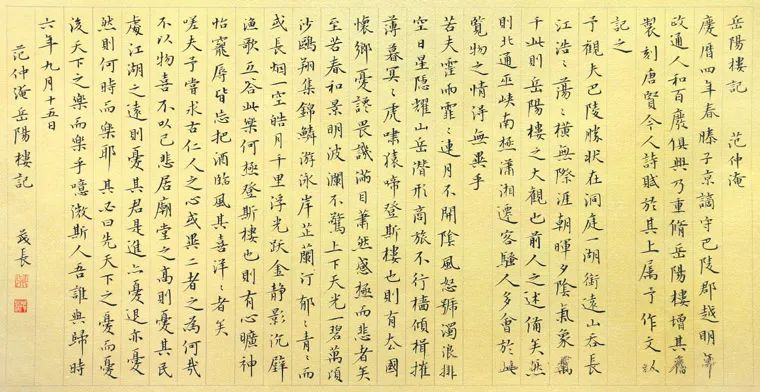 岳陽樓記 范仲淹
慶曆四年春滕子京謫守巴陵郡越明年
政通人和百廢俱興乃重脩岳陽樓增其舊
製刻唐賢今人詩賦於其上属予作文以
記之
予觀夫巴陵勝狀在洞庭一湖銜遠山吞長
江浩〻蕩〻橫無際涯朝暉夕陰氣象萬
千此則岳陽樓之大觀也前人之述備矣然
則北通巫峽南極瀟湘遷客騷人多會於此
覽物之情得無異乎
若夫霪雨霏〻連月不開陰風怒號濁浪排
空日星隱耀山岳潛形商旅不行檣傾楫摧
薄暮冥〻虎嘯猿啼登斯樓也則有去國
懷鄉憂讒畏譏滿目蕭然感極而悲者矣
至若春和景明波瀾不驚上下天光一碧萬頃
沙鷗翔集錦鱗游泳岸芷蘭汀郁〻青〻而
或長烟一空皓月千里浮光跃金靜影沉璧
漁歌互答此樂何極登斯樓也則有心曠神
怡寵辱皆忘把酒臨風其喜洋〻者矣
嗟夫予嘗求古仁人之心或異二者之為何哉
不以物喜不以己悲居廟堂之高則憂其民
處江湖之遠則憂其君是進亦憂退亦憂
然則何時而樂耶其必曰先天下之憂而憂
後天下之樂而樂乎噫微斯人吾誰與歸時
六年九月十五日
范仲淹岳陽樓記 茂長